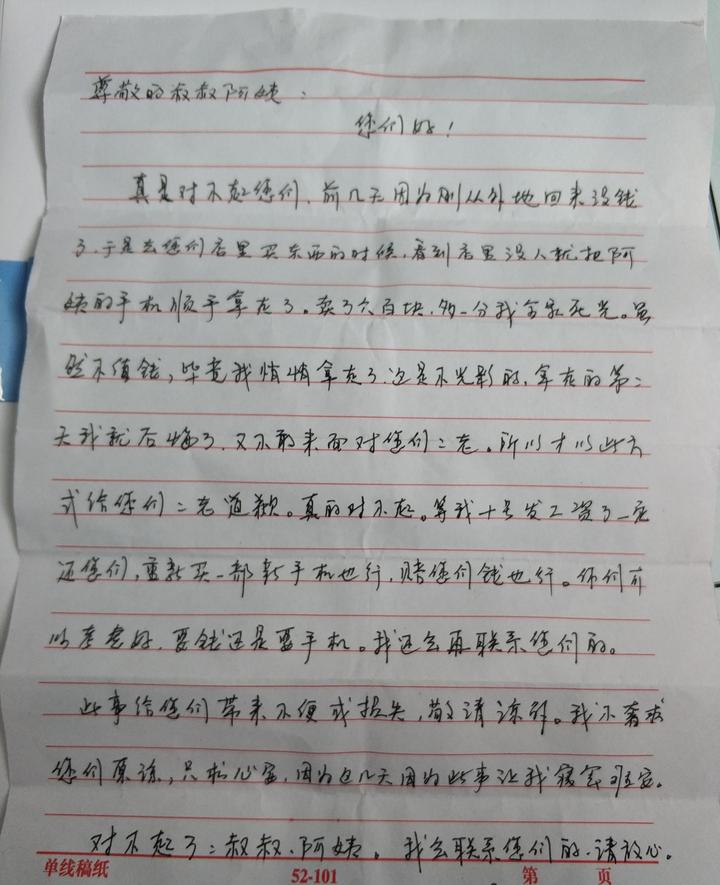 尊敬的叔叔阿姨：
您们好！
真是对不起您们，前几天因为刚从外地回来没钱
了，于是去您们店里买东西的时候，看到店里没人就把阿
姨的手机顺手拿走了。卖了六百块，多一分我全家死光。虽
然不值钱，毕竟我悄悄拿走了，这是不光彩的，拿走的第二
天我就后悔了，又不敢来面对您们二老。所以才以此方
式给您们二老道歉。真的对不起。等我十号发工资了一定
还您们，重新买一部新手机也行，赔您们钱也行。你们可
以考虑好，要钱还是要手机。我还会再联系您们的。
此事给您们带来不便或损失，敬请谅解。我不奢求
您们原谅，只求心安，因为这几天因为此事让我寝食难安。
对不起了：叔叔、阿姨。我会联系您们的，请放心。
单线稿纸 52-101 第 页